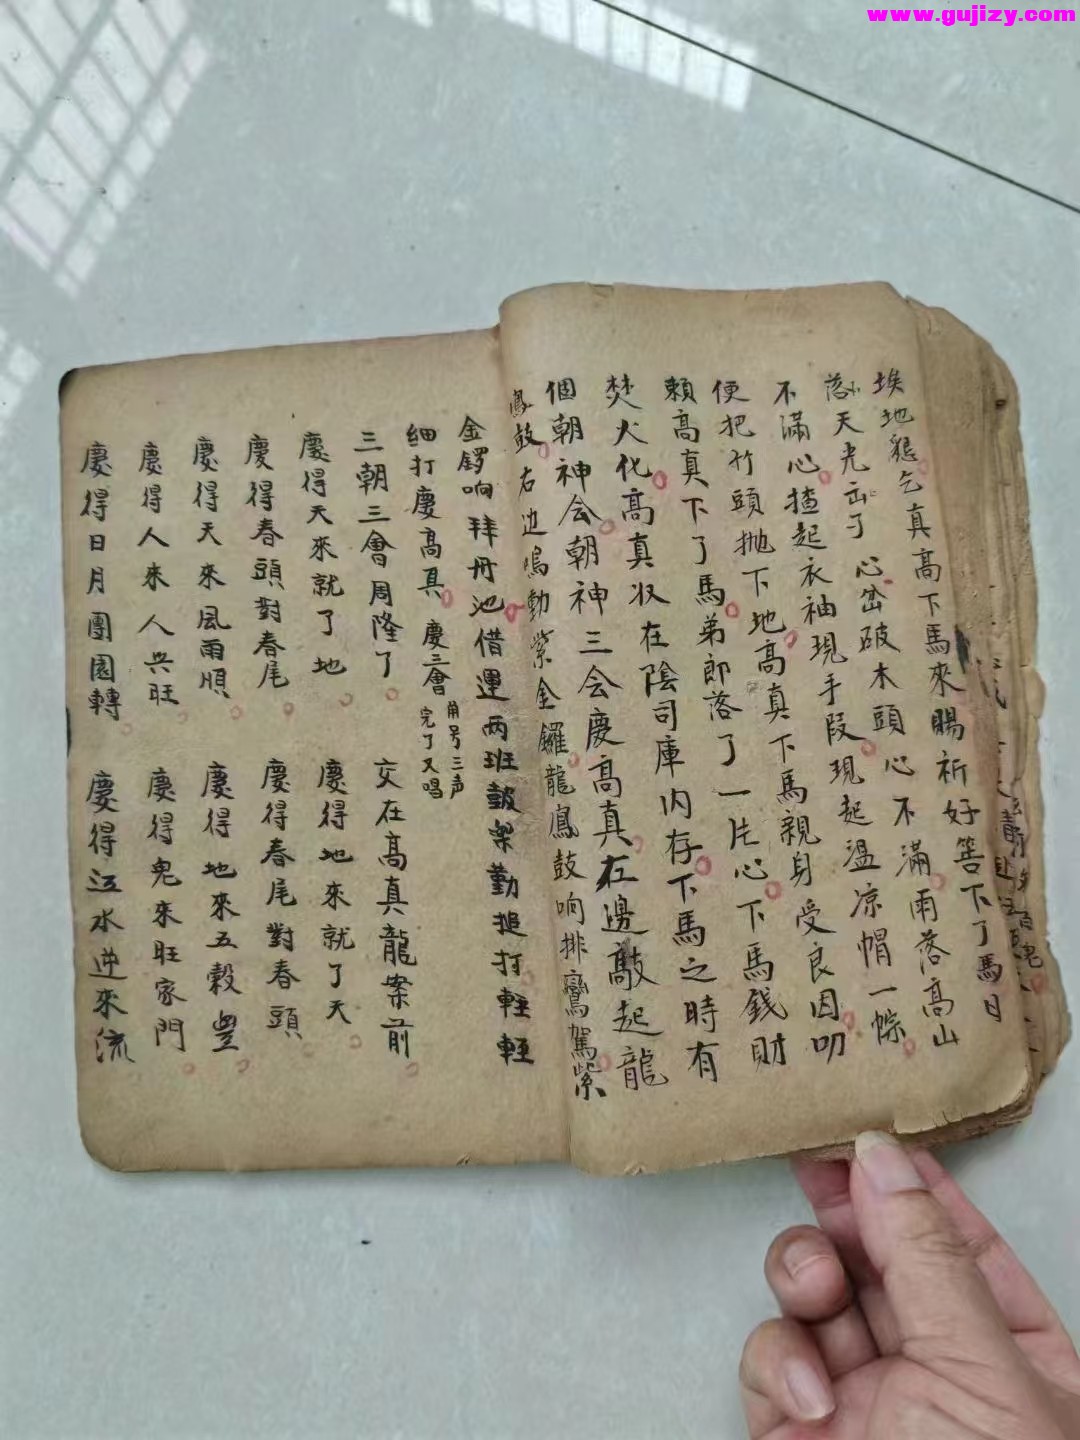 www.gujizy.com
埃地懇乞真高下馬來賜祈好筶下了馬日
落天光出了心岔破木頭心不滿雨落高山
不滿心揸起衣袖現手段現起温凉帽一
便把竹頭拋下地高真下馬親身受良因叩
賴高真下了馬弟郎落了一片心下馬錢財
焚火化高真收在陰司庫内存下馬之時有
個朝神会朝神三会慶高真在邊敲起龍
鳳鼓右边鳴動紫金鑼龍鳳鼓响排鸞駕紫
金鑼响拜丹池借運两班鼓樂勤搥打輕輕
細打慶高真 慶三會 角号三声完了又唱
三朝三會周隆了 交在高真龍案前
慶得天來就了地 慶得地來就了天
慶得春頭對春尾 慶得春尾對春頭
慶得天來風雨順 慶得地來五穀豊
慶得人來人興旺 慶得鬼來旺家門
慶得日月團圓轉 慶得江水逆來流